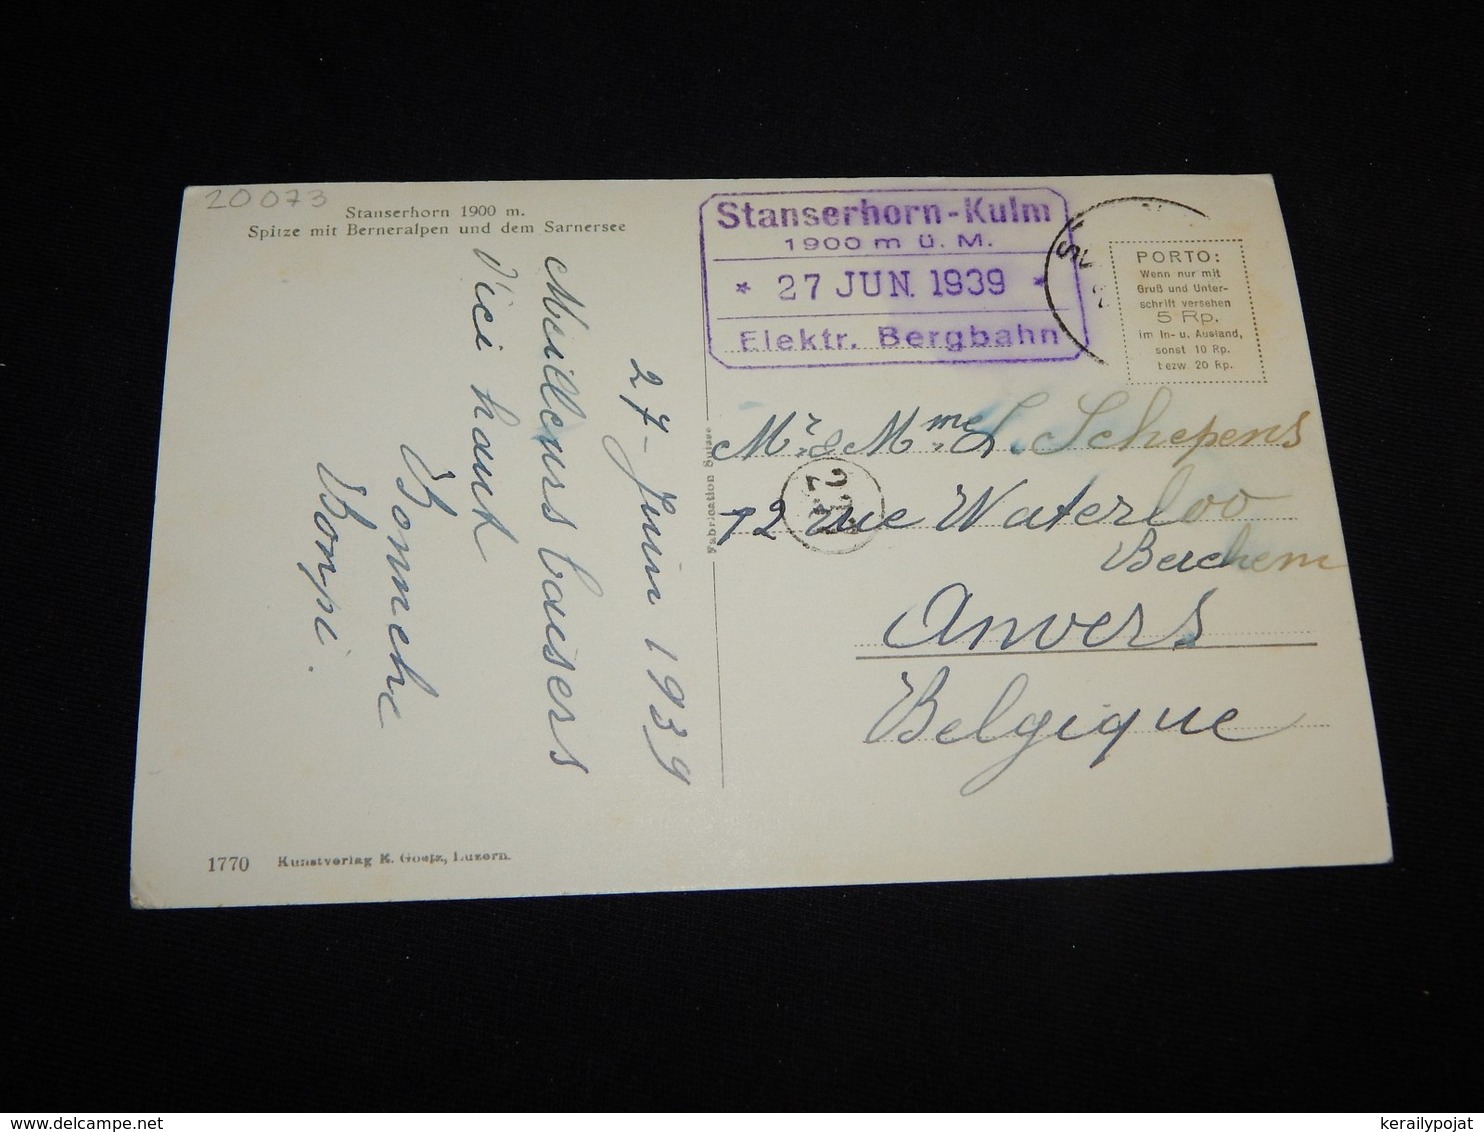 20073
Stanserhorn 1900 m.
Spitze mit Berneralpen und dem Sarnersee
Stanserhorn-Kulm
1900 m ü. M.
* 27 JUN. 1939 *
Elektr. Bergbahn
PORTO:
Wenn nur mit
Gruß und Unter-
schrift versehen
5 Rp.
im In- u. Ausland,
sonst 10 Rp.
bezw. 20 Rp.
27 - Juin 1939
Meilleurs baisers
d'ici haut
Bonneke
Bompi.
Fabrication Suisse
Mr & Mme L. Schepens
72 rue Waterloo
Berchem
Anvers
Belgique
1770 Kunstverlag E. Goetz, Luzern.
kerailypojat